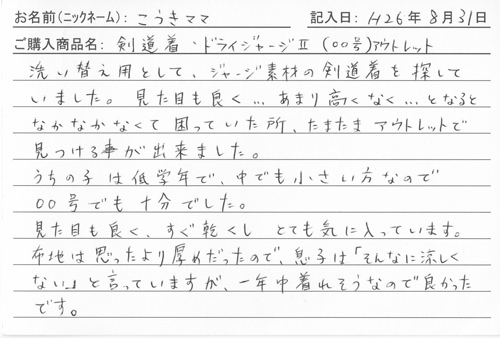 お名前(ニックネーム): こうきママ 記入日: H26年8月31日
ご購入商品名: 剣道着・ドライジャージⅡ (00号)アウトレット
洗い替え用として、ジャージ素材の剣道着を探して
いました。見た目も良く… あまり高くなく…となると
なかなかなくて困っていた所、たまたまアウトレットで
見つける事が出来ました。
うちの子は低学年で、中でも小さい方なので
00号でも十分でした。
見た目も良く、すぐ乾くし とても気に入っています。
布地は思ったより厚めだったので、息子は「そんなに涼しく
ない。」と言っていますが、一年中着れそうなので良かった
です。